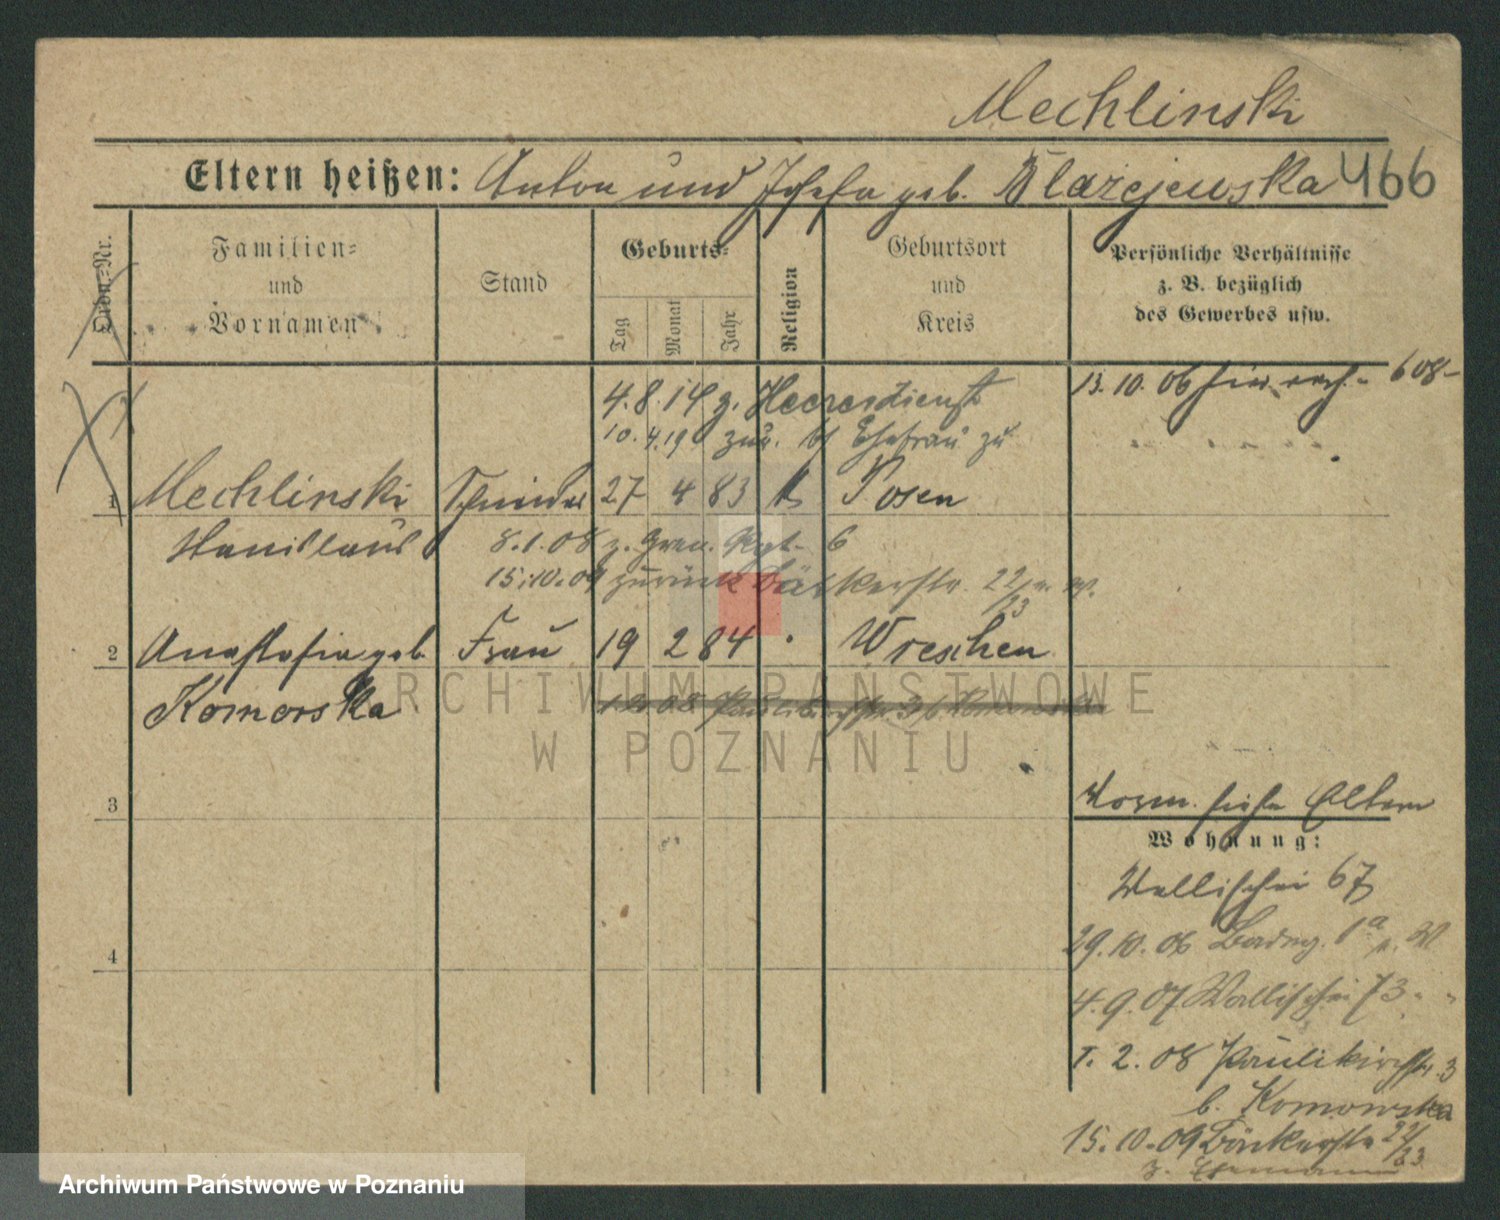 Mechlinski
Eltern heißen: Anton und Josefa geb. Blażejewska 466
Lfde.-Nr.
Familien-
und
Vornamen
Stand
Geburts-
Tag
Monat
Jahr
Religion
Geburtsort
und
Kreis
Persönliche Verhältnisse
z. B. bezüglich
des Gewerbes usw.
4.8.14 z. Heeresdienst
13.10.06 608
10.4.19 zur. Ehefrau zu
1 Mechlinski 27 4 83 k Posen
Stanislaus 8.1.08 z. Gren. Rgt. 6
15.10.09 zurück Bäckerstr. 22/23 n. W.
2 Anastasia geb. Frau 19 2 84 Wreschen
Komorska
3
Vorm. siehe Eltern
Wohnung:
Wallischei 67
4
29.10.06 1a n. W
4.9.07 Wallischei 73
1.2.08 Paulikirchstr. 3
b. Komorska
15.10.09 Bäckerstr. 22/23
z. Ehemann
ARCHIWUM PAŃSTWOWE
W POZNANIU
Archiwum Państwowe w Poznaniu